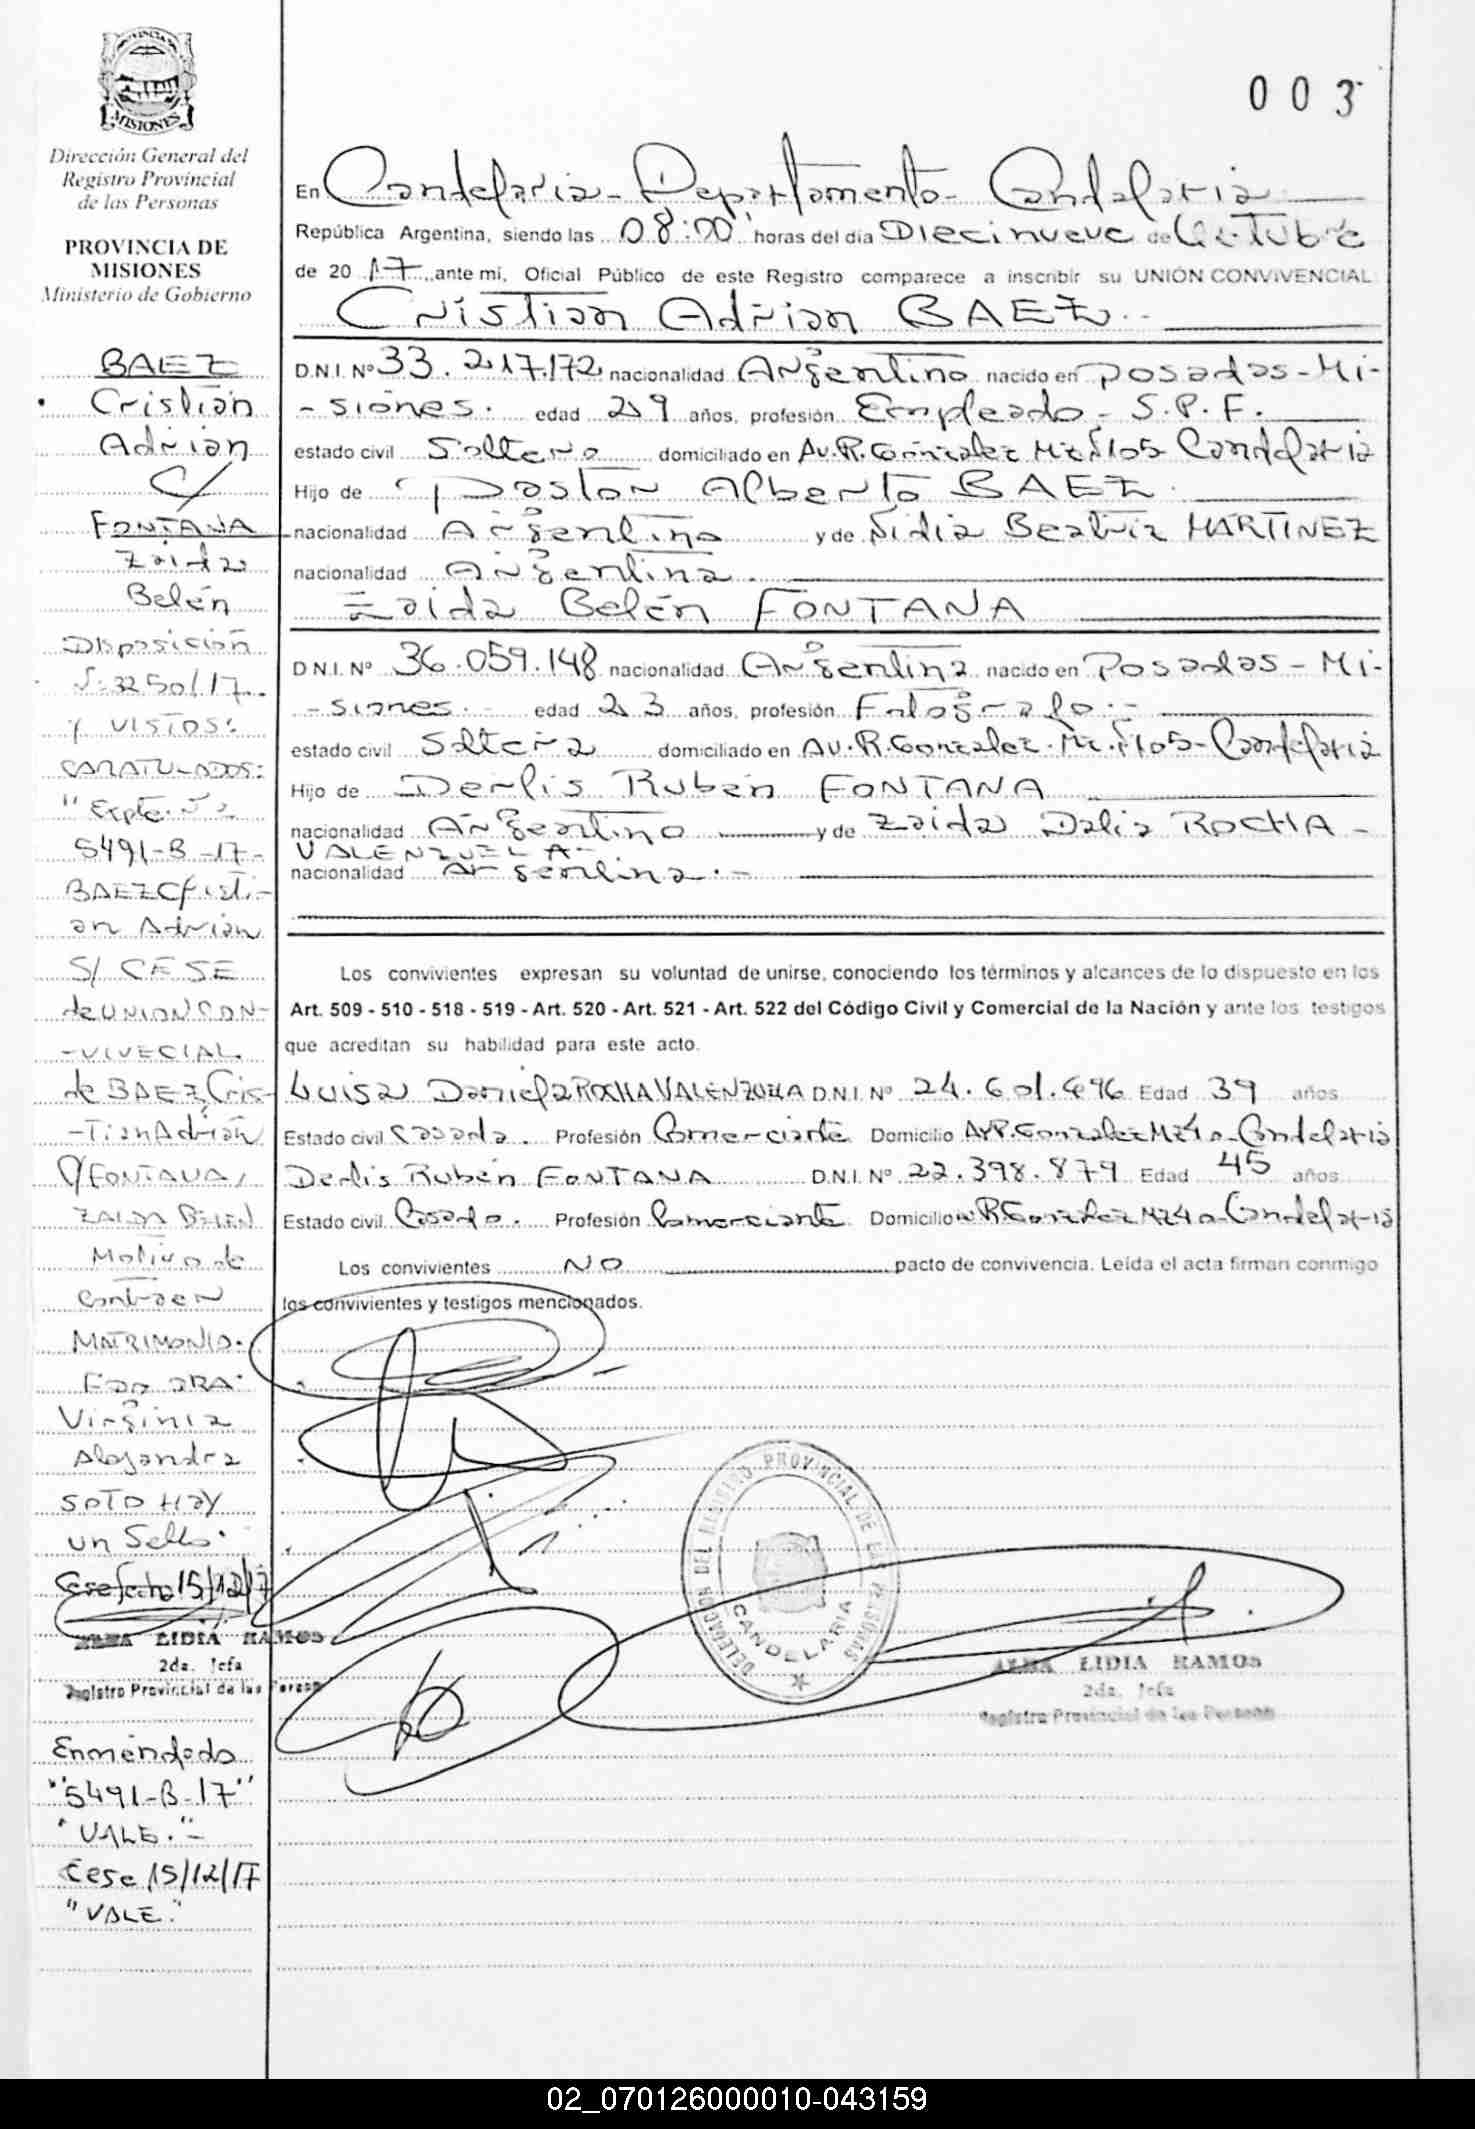 PROVINCIA DE
MISIONES
Dirección General del
Registro Provincial
de las Personas
PROVINCIA DE
MISIONES
Ministerio de Gobierno
BAEZ
Cristian
Adrian
C/
FONTANA
Zaida
Belén
Disposición
Nº 3250/17.
y VISTOS:
CARATULADOS:
"Expte. Nº
5491-B-17-
BAEZ Cristi-
an Adrian
S/ CESE
de UNION CON-
-VIVECIAL.
de BAEZ, Cris-
-Tian Adrián
C/ FONTANA,
ZAIDA BELEN
Motivo de
Contraer
MATRIMONIO.
Fdo DRA.
Virginia
Alejandra
SOTO HAY
un Sello.
Cese fecha 15/12/17
ALBA LIDIA RAMOS
2da. Jefa
Registro Provincial de las Person
Enmendado
"5491-B-17"
"VALE."-
Cese 15/12/17
"VALE."
003
En Candelaria - Departamento - Candelaria
República Argentina, siendo las 08:00 horas del día Diecinueve de Octubre
de 20 17, ante mi, Oficial Público de este Registro comparece a inscribir su UNIÓN CONVIVENCIAL
Cristian Adrian BAEZ
D.N.I. Nº 33.217.172 nacionalidad Argentino nacido en Posadas-Mi-
-siones. edad 29 años, profesión Empleado - S.P.F.
estado civil Soltero domiciliado en Av. R. Gonzalez Mz Nº 105 Candelaria
Hijo de Gaston Alberto BAEZ
nacionalidad Argentino y de Nidia Beatriz MARTINEZ
nacionalidad Argentina.
Zaida Belén FONTANA
D.N.I. Nº 36.059.148 nacionalidad Argentina nacido en Posadas-Mi-
-siones.- edad 23 años, profesión Fotografo.-
estado civil Soltera domiciliado en Av. R. Gonzalez. Mz. Nº 105-Candelaria
Hijo de Derlis Rubén FONTANA
nacionalidad Argentino y de Zaida Dalia ROCHA-
VALENZUELA-
nacionalidad Argentina.-
Los convivientes expresan su voluntad de unirse, conociendo los términos y alcances de lo dispuesto en los
Art. 509 - 510 - 518 - 519 - Art. 520 - Art. 521 - Art. 522 del Código Civil y Comercial de la Nación y ante los testigos
que acreditan su habilidad para este acto.
Luisa Daniela ROCHA VALENZUELA D.N.I. Nº 24.601.496 Edad 39 años
Estado civil Casada. Profesión Comerciante Domicilio Av R. Gonzalez Mz 40-Candelaria
Derlis Rubén FONTANA D.N.I. Nº 22.398.879 Edad 45 años
Estado civil Casado. Profesión Comerciante Domicilio Av R Gonzalez Mz 40-Candelaria
Los convivientes NO pacto de convivencia. Leída el acta firman conmigo
los convivientes y testigos mencionados.
DELEGACION DEL REGISTRO PROVINCIAL DE LAS PERSONAS
CANDELARIA
ALBA LIDIA RAMOS
2da. Jefa
Registro Provincial de las Personas
02_070126000010-043159